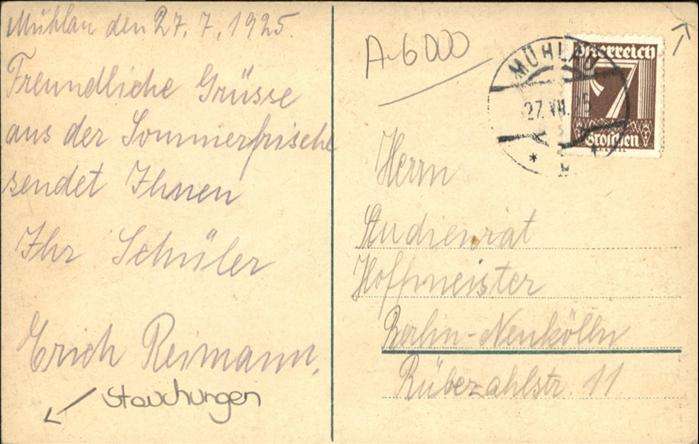 Mühlau den 27. 7. 1925.
Freundliche Grüsse
aus der Sommerfrische
sendet Ihnen
Ihr Schüler
Erich Reimann.
Stauchungen
A-6000
MÜHLAU
27.VII.25
Österreich
7
Groschen
Herrn
Studienrat
Hoffmeister
Berlin-Neukölln
Rübezahlstr. 11